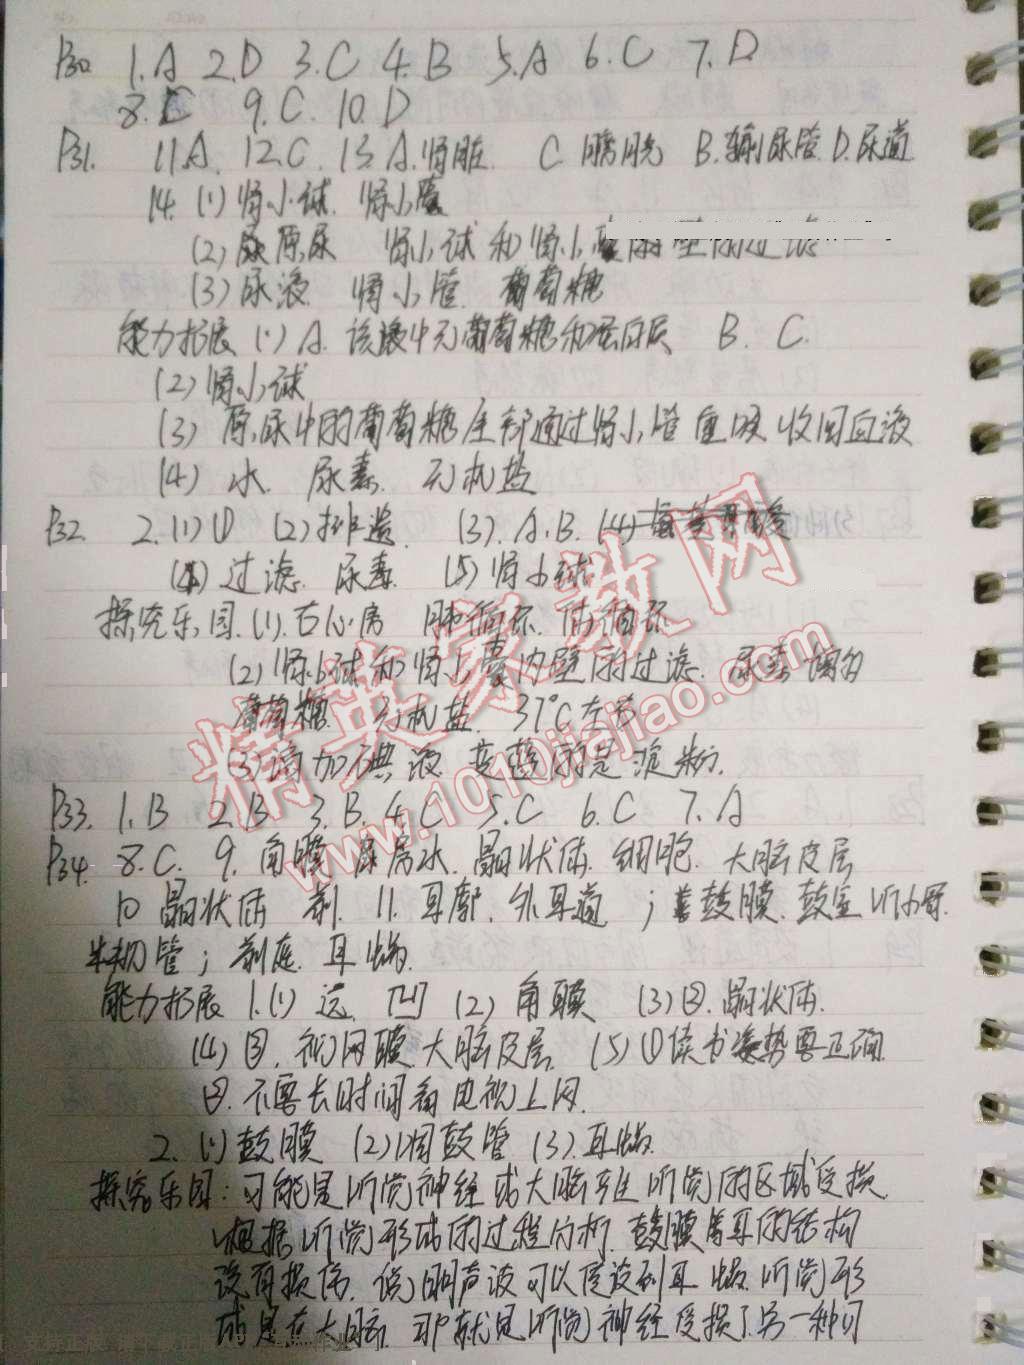 P30 1.A 2.D 3.C 4.B 5.A 6.C 7.D
8.C 9.C 10.D
P31. 11.A. 12.C. 13.A.肾脏 C.膀胱 B.输尿管 D.尿道
14.(1)肾小球. 肾小囊
(2)原尿 肾小球和肾小囊
(3)尿液. 肾小管. 葡萄糖
能力拓展(1)A.该液中无葡萄糖和蛋白质 B. C.
(2)肾小球
(3)原尿中的葡萄糖全部通过肾小管重吸收回血液
(4)水. 尿素. 无机盐
P32 2.(1)① (2)排遗. (3).A.B.
(4)过滤. 尿素. (5)肾小球
探究乐园.(1).右心房 肺循环. 体循环
(2)肾小球和肾小囊内壁的过滤. 尿素
葡萄糖 无机盐. 37℃左右
(3)滴加碘液 变蓝的是淀粉.
P33. 1.B 2.B 3.B. 4.C 5.C 6.C 7.A
P34. 8.C. 9.角膜. 房水. 晶状体. 细胞. 大脑皮层
10 晶状体 11.耳廓. 外耳道; 鼓膜. 鼓室 听小骨.
半规管; 前庭. 耳蜗.
能力拓展 1.(1)远. 凹 (2)角膜 (3)②.晶状体.
(4)③. 视网膜. 大脑皮层. (5)①读书姿势要正确.
②.不要长时间看电视上网.
2.(1)鼓膜 (2)咽鼓管 (3).耳蜗.
探究乐园:可能是听觉神经或大脑里听觉的区域受损.
根据听觉形成的过程分析. 鼓膜等耳的结构
没有损伤. 说明声波可以传波到耳蜗. 听觉形
成是在大脑. 那就是听觉神经受损了.另一种可
精英家教网
www.1010jiajiao.com